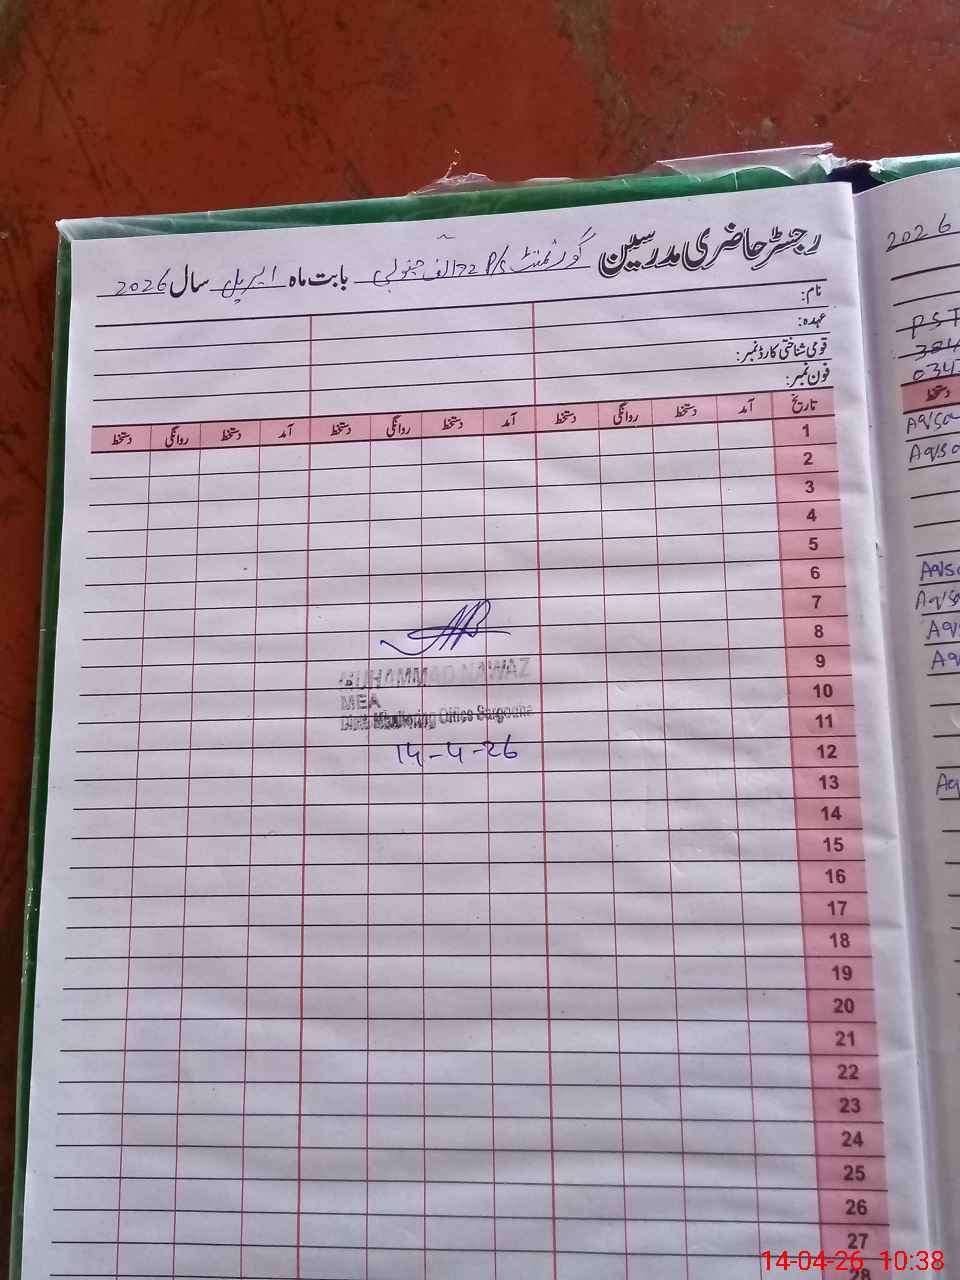 رجسٹر حاضری مدرسین گورنمنٹ P/S 22 الف جنوبی بابت ماہ اپریل سال 2026
نام:
عہدہ:
قومی شناختی کارڈ نمبر:
فون نمبر:
تاریخ آمد دستخط روانگی دستخط آمد دستخط روانگی دستخط آمد دستخط روانگی دستخط
1
2
3
4
5
6
7
8
9
10
11
12
13
14
15
16
17
18
19
20
21
22
23
24
25
26
27
28
MUHAMMAD NAWAZ
MEA
Monitoring Office Sargodha
14-4-26
2026
PST
384
0347
دستخط
14-04-26 10:38